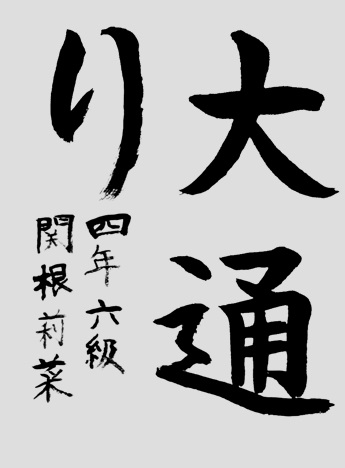 大通
り
四年六級
関根莉菜